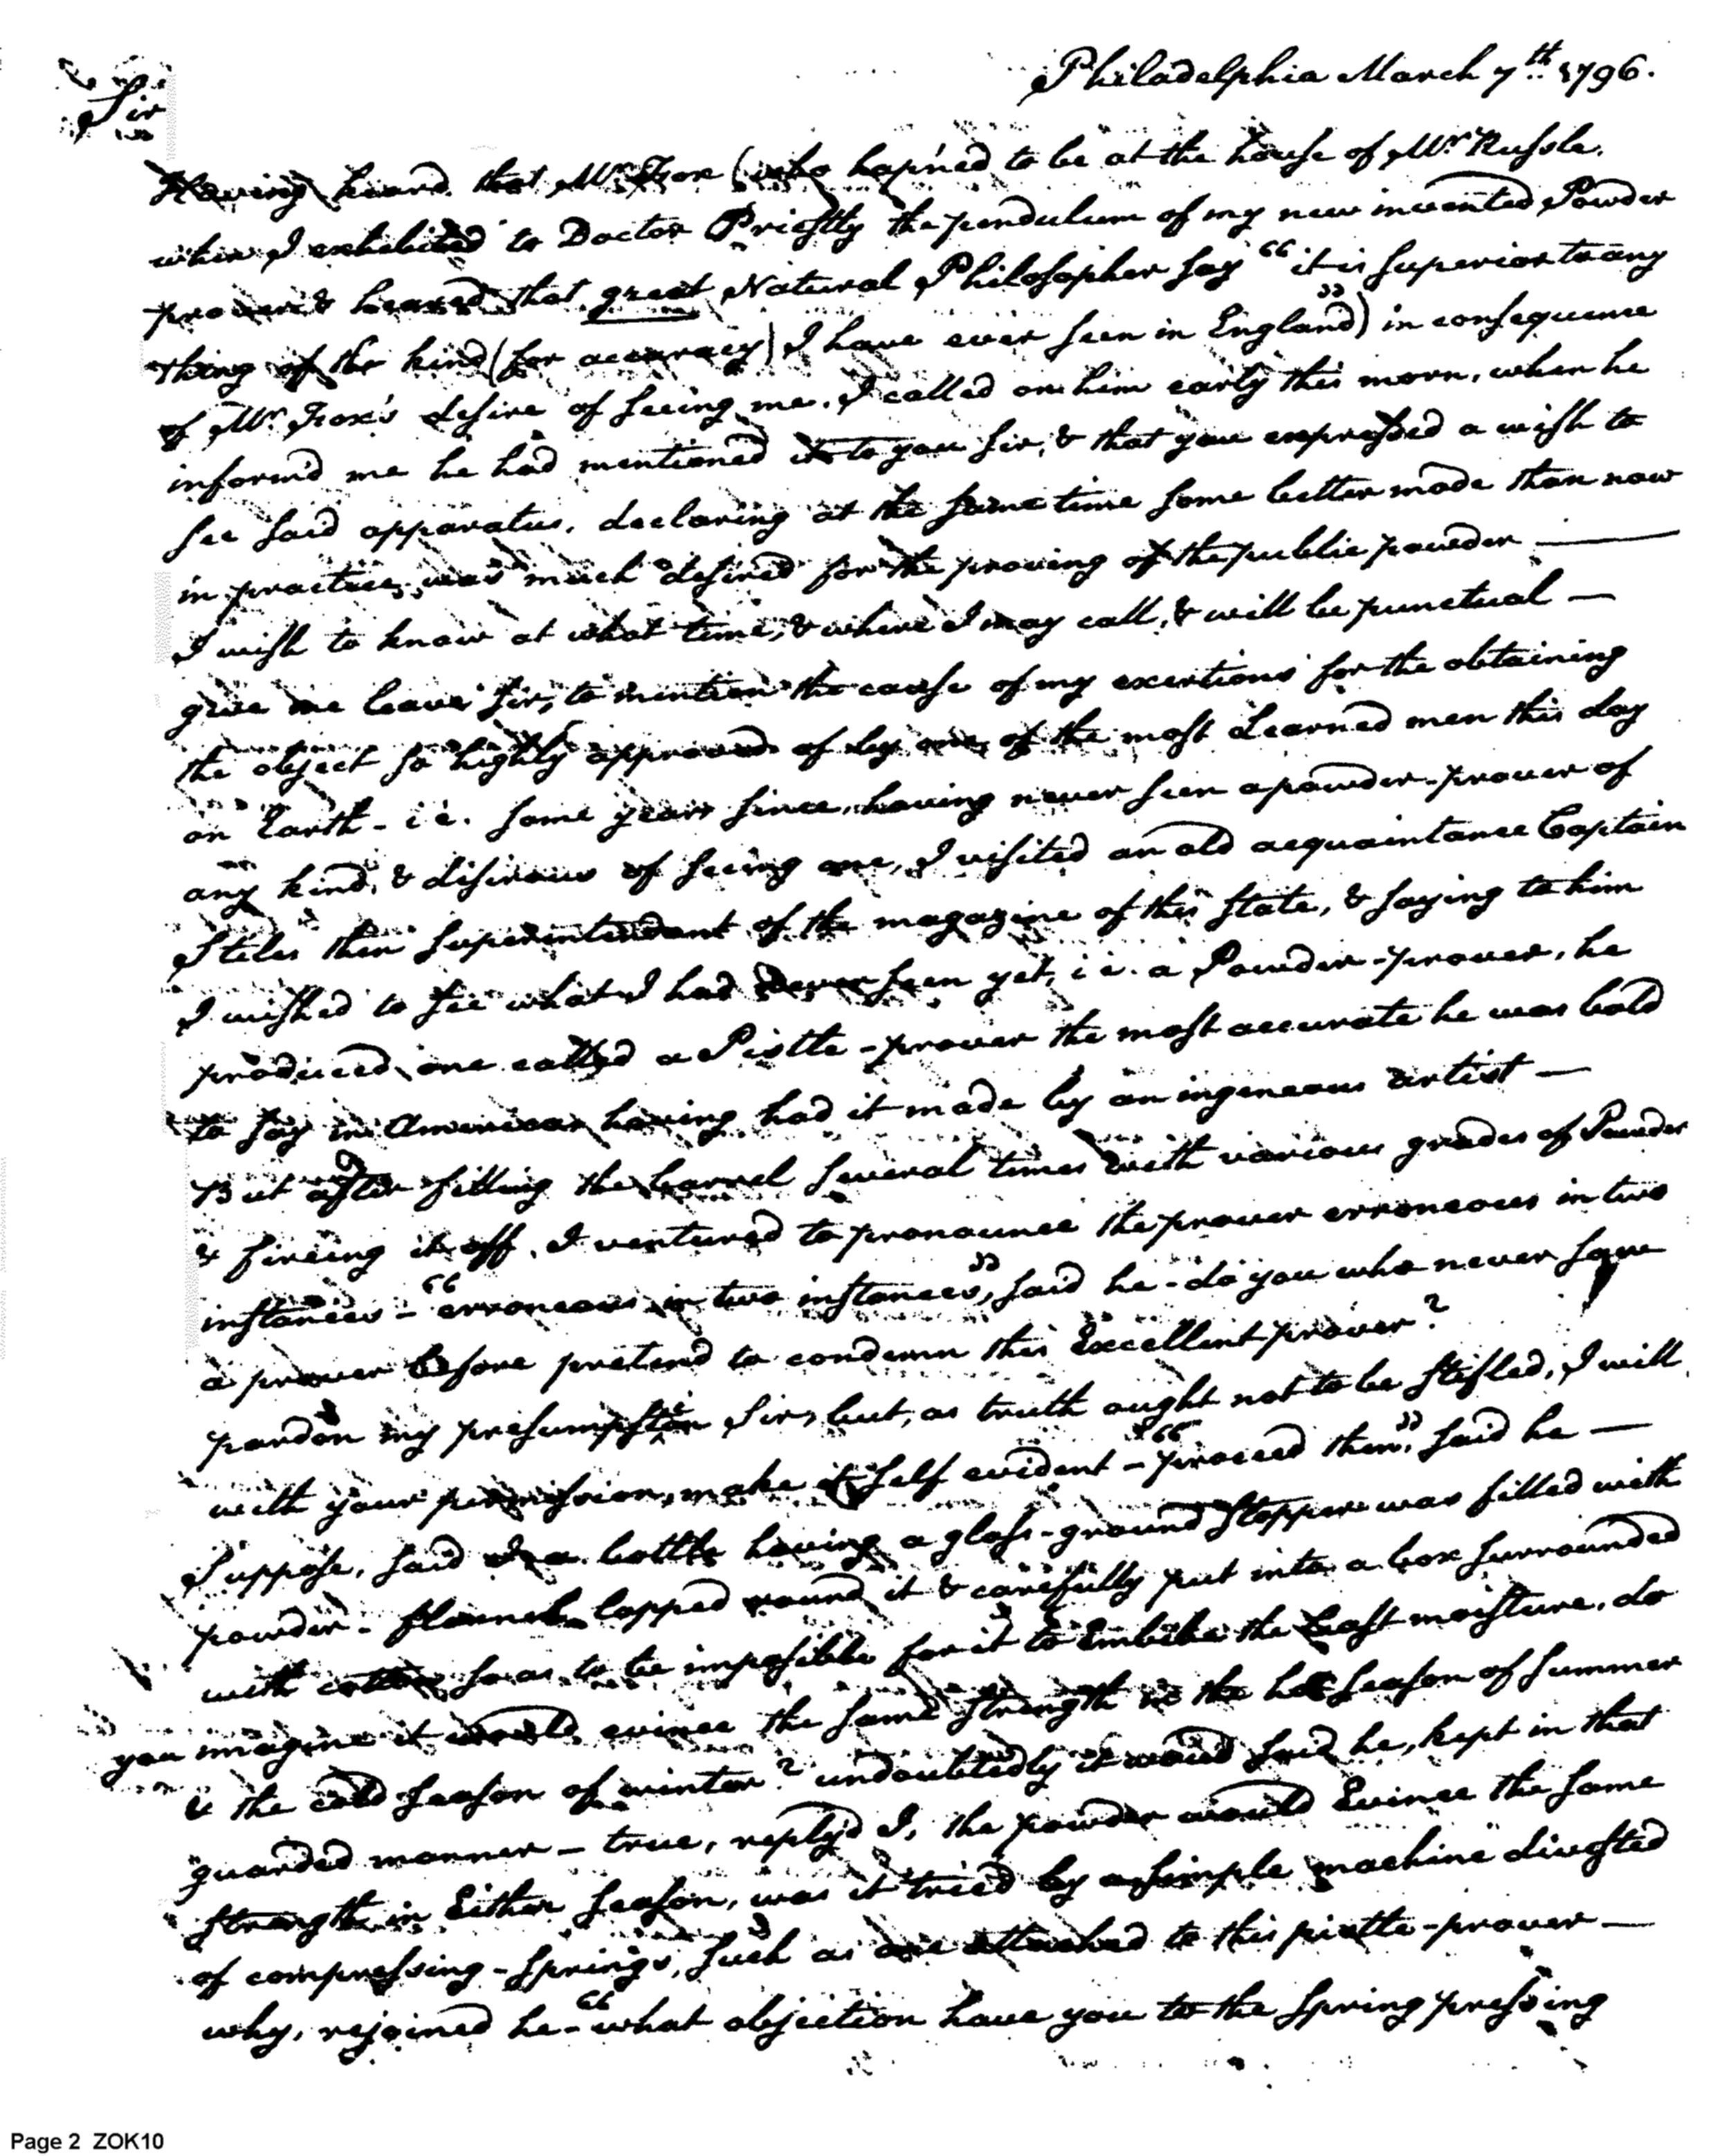 Philadelphia March 7th 1796.
Sir
Having heard that Mr. Fox (who hapined to be at the house of Mr. Russle.
when I exhibited to Doctor Priestly the pendulum of my new invented Powder
prover & heared that great Natural Philosopher say "it is superior to any
thing of the kind (for accuracy) I have ever seen in England") in consequence
of Mr. Fox's desire of seeing me. I called on him early this morn, when he
inform'd me he had mentioned it to you Sir, & that you expressed a wish to
see said apparatus, declaring at the same time some better made than now
in practice, was much desired for the proving of the public powder —
I wish to know at what time, & where I may call, & will be punctual —
give me leave Sir, to mention the cause of my exertions for the obtaining
the object so highly approved of by one of the most Learned men this day
on Earth - i.e. some years since, having never seen a powder-prover of
any kind, & disirous of seeing one, I visited an old acquaintance Captain
Stiles then superintendant of the magazine of this State, & saying to him
I wished to see what I had never seen yet, i.e. a Powder-prover, he
produced one called a Pistle-prover the most accurate he was bold
to say in America having had it made by an ingeneous artist —
But after filling the barrel several times with various grades of Powder
& fireing it off, I ventured to pronounce the prover erroneous in two
instances - "erroneous in two instances", said he - do you who never saw
a prover before pretend to condemn this Excellent prover?
pardon my presumpstion Sir, but, as truth ought not to be stifled, I will
with your permission, make it self evident - "proceed then", said he —
Suppose, said I a bottle having a glass-ground stopper was filled with
powder - flannel lapped round it & carefully put into a box surrounded
with cotton so as to be impossible for it to Embibe the least moisture, do
you imagine it would evince the same strength in the hot season of summer
& the cold season of winter? undoubtedly it would said he, kept in that
guarded manner - true, reply'd I, the powder would Evince the same
strength in Either season, was it tried by a simple machine divested
of compressing-springs, such as are attached to this pistle-prover —
why, rejoined he - "what objection have you to the spring pressing
Page 2 ZOK10